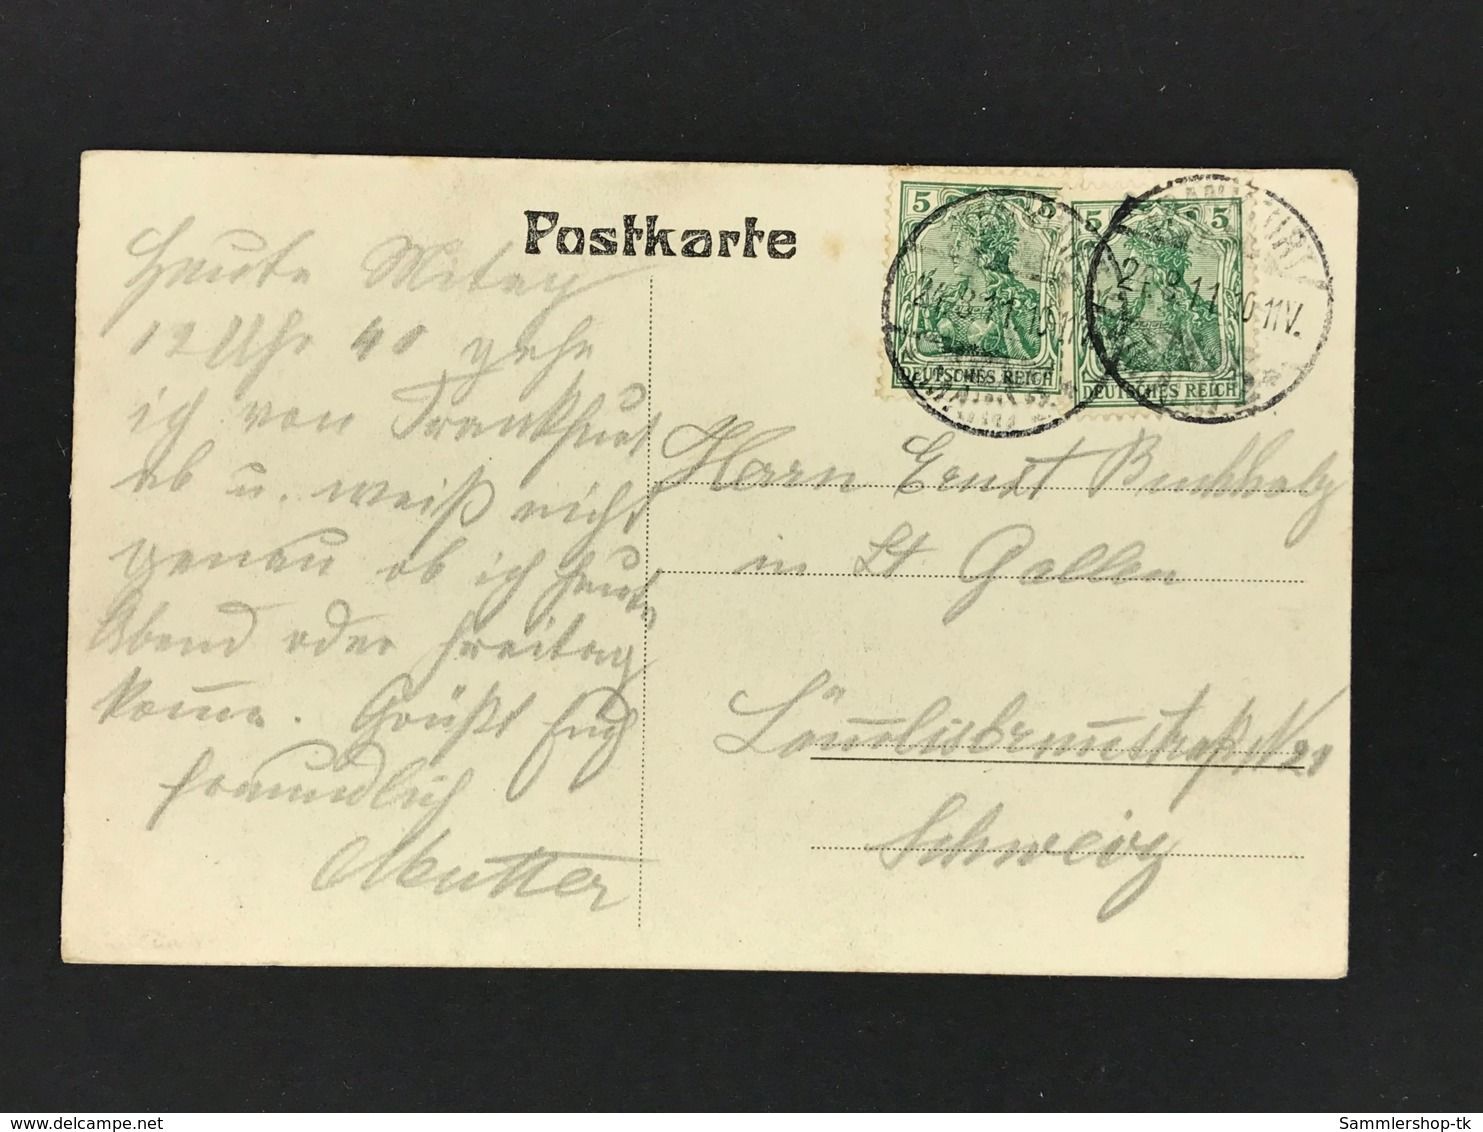 Postkarte
5 5
DEUTSCHES REICH
24.8.11.10-11V.
5 5
DEUTSCHES REICH
24.8.11.10-11V.
Heute Mitag
12 Uhr 40 gehe
ich von Frankfurt
ab u. weiß nicht
genau ob ich heute
Abend oder Freitag
kom̅e. Grüßt Euch
freundlich
Mutter
Herrn Ernst Buchholz
in St Gallen
Schweiz
Sammlershop-tk